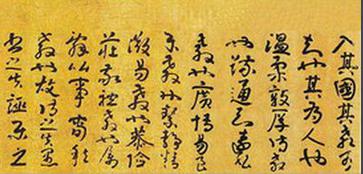 入其國其教可
知也其為人也
溫柔敦厚詩教
也疏通知遠書
教也廣博易良
樂教也絜靜精
微易教也恭儉
莊敬禮教也屬
辭比事春秋
教也故詩之失愚
書之失誣樂之